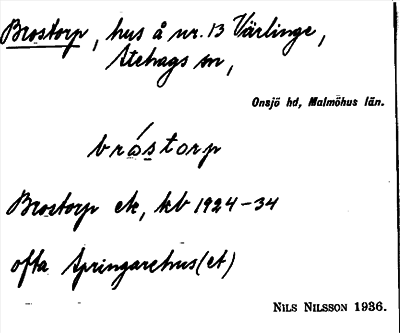 Brostorp, hus å nr. 13 Värlinge,
Stehags sn,
Onsjö hd, Malmöhus län.
bróstorp
Brostorp etc, kb 1924-34
ofta Springarehus(et)
NILS NILSSON 1936.